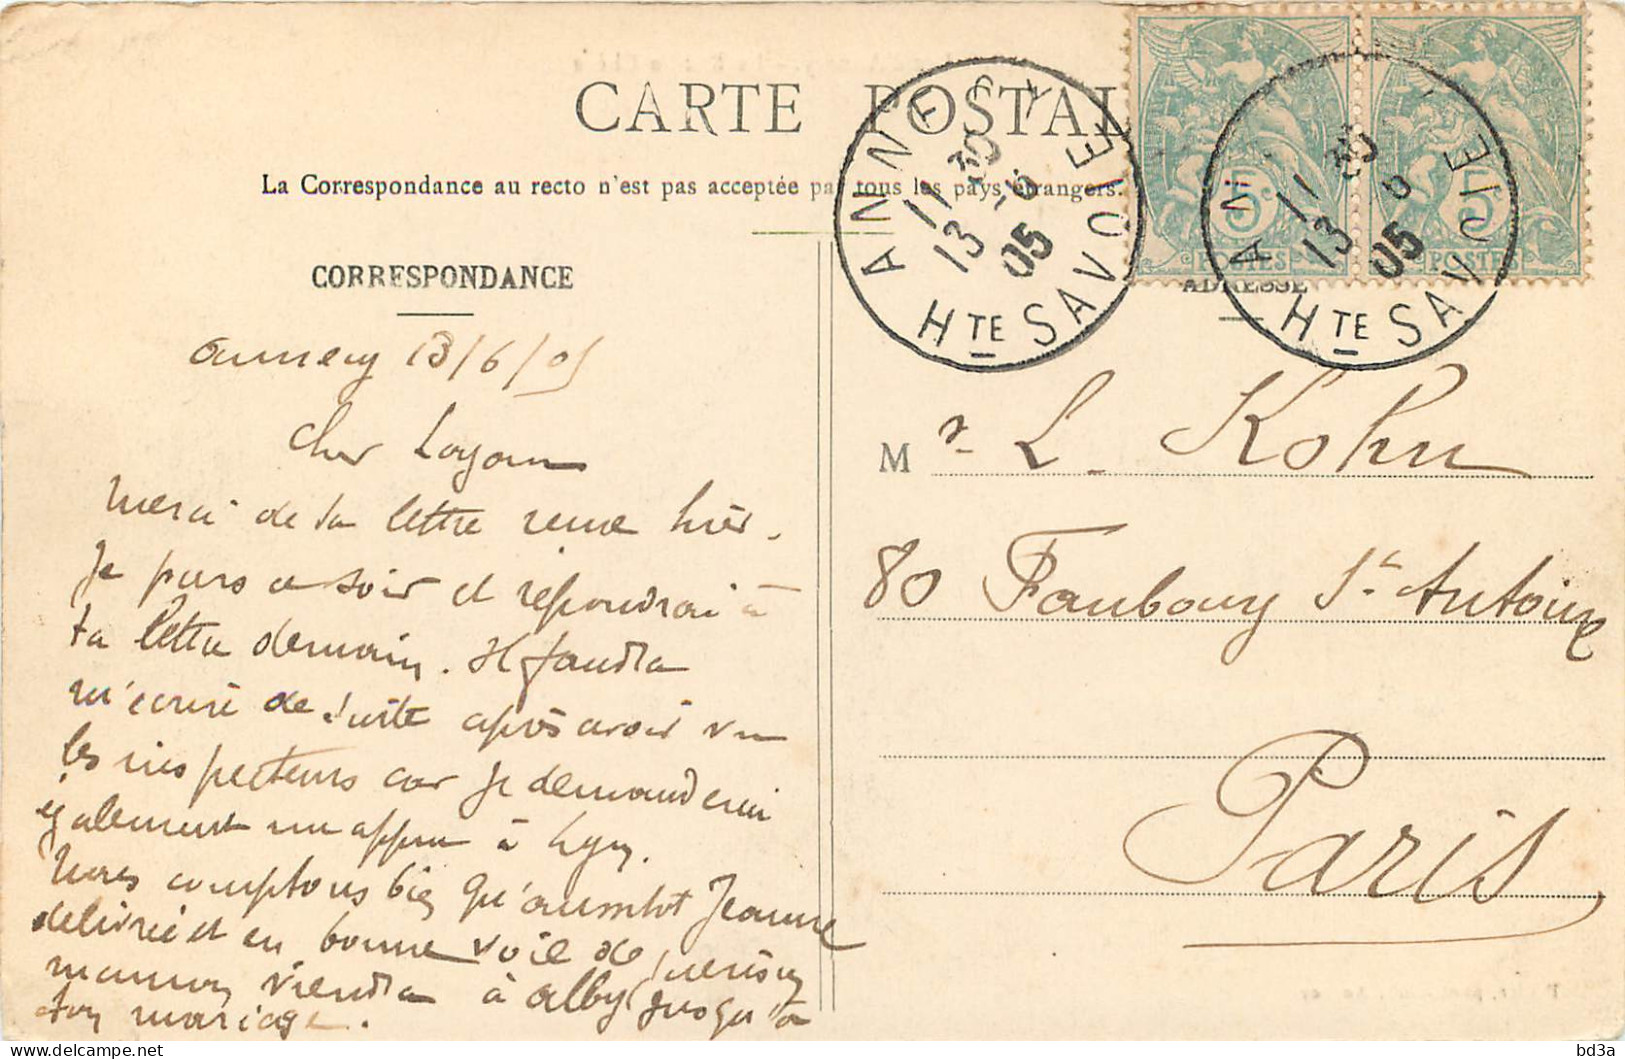 CARTE POSTALE
La Correspondance au recto n'est pas acceptée par tous les pays étrangers.
ANNECY
11 30
13 -6
05
Hte SAVOIE
5c
POSTES
11 35
13 6
05
Hte SAVOIE
5c
POSTES
CORRESPONDANCE
ADRESSE
Annecy 13/6/05
Cher
Merci de ta lettre reçue hier.
Je pars ce soir et répondrai à
ta lettre demain. Il faudra
m'écrire de suite après avoir vu
les inspecteurs car je demanderai
également un appui à Lyon.
Nous comptons bien qu'aussitot Jeanne
délivrée et en bonne voie de guérison
maman viendra à Alby jusqu'à
ton mariage.
Mr. L. Kohn
80 Faubourg St. Antoine
Paris
bd3a